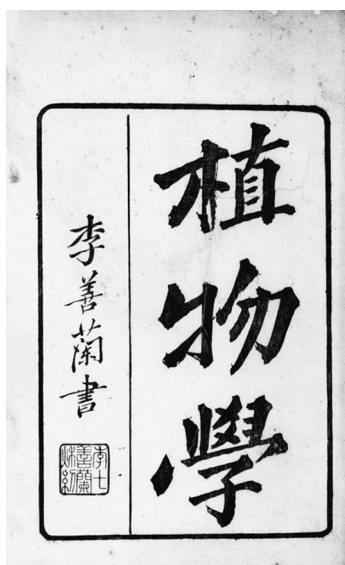 植物學
李善蘭書